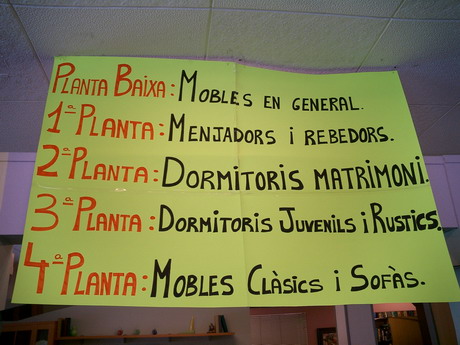 PLANTA BAIXA: MOBLES EN GENERAL.
1ª PLANTA: MENJADORS i REBEDORS.
2ª PLANTA: DORMITORIS MATRIMONI.
3ª PLANTA: DORMITORIS JUVENILS i RUSTICS.
4ª PLANTA: MOBLES CLÀSICS i SOFÀS.